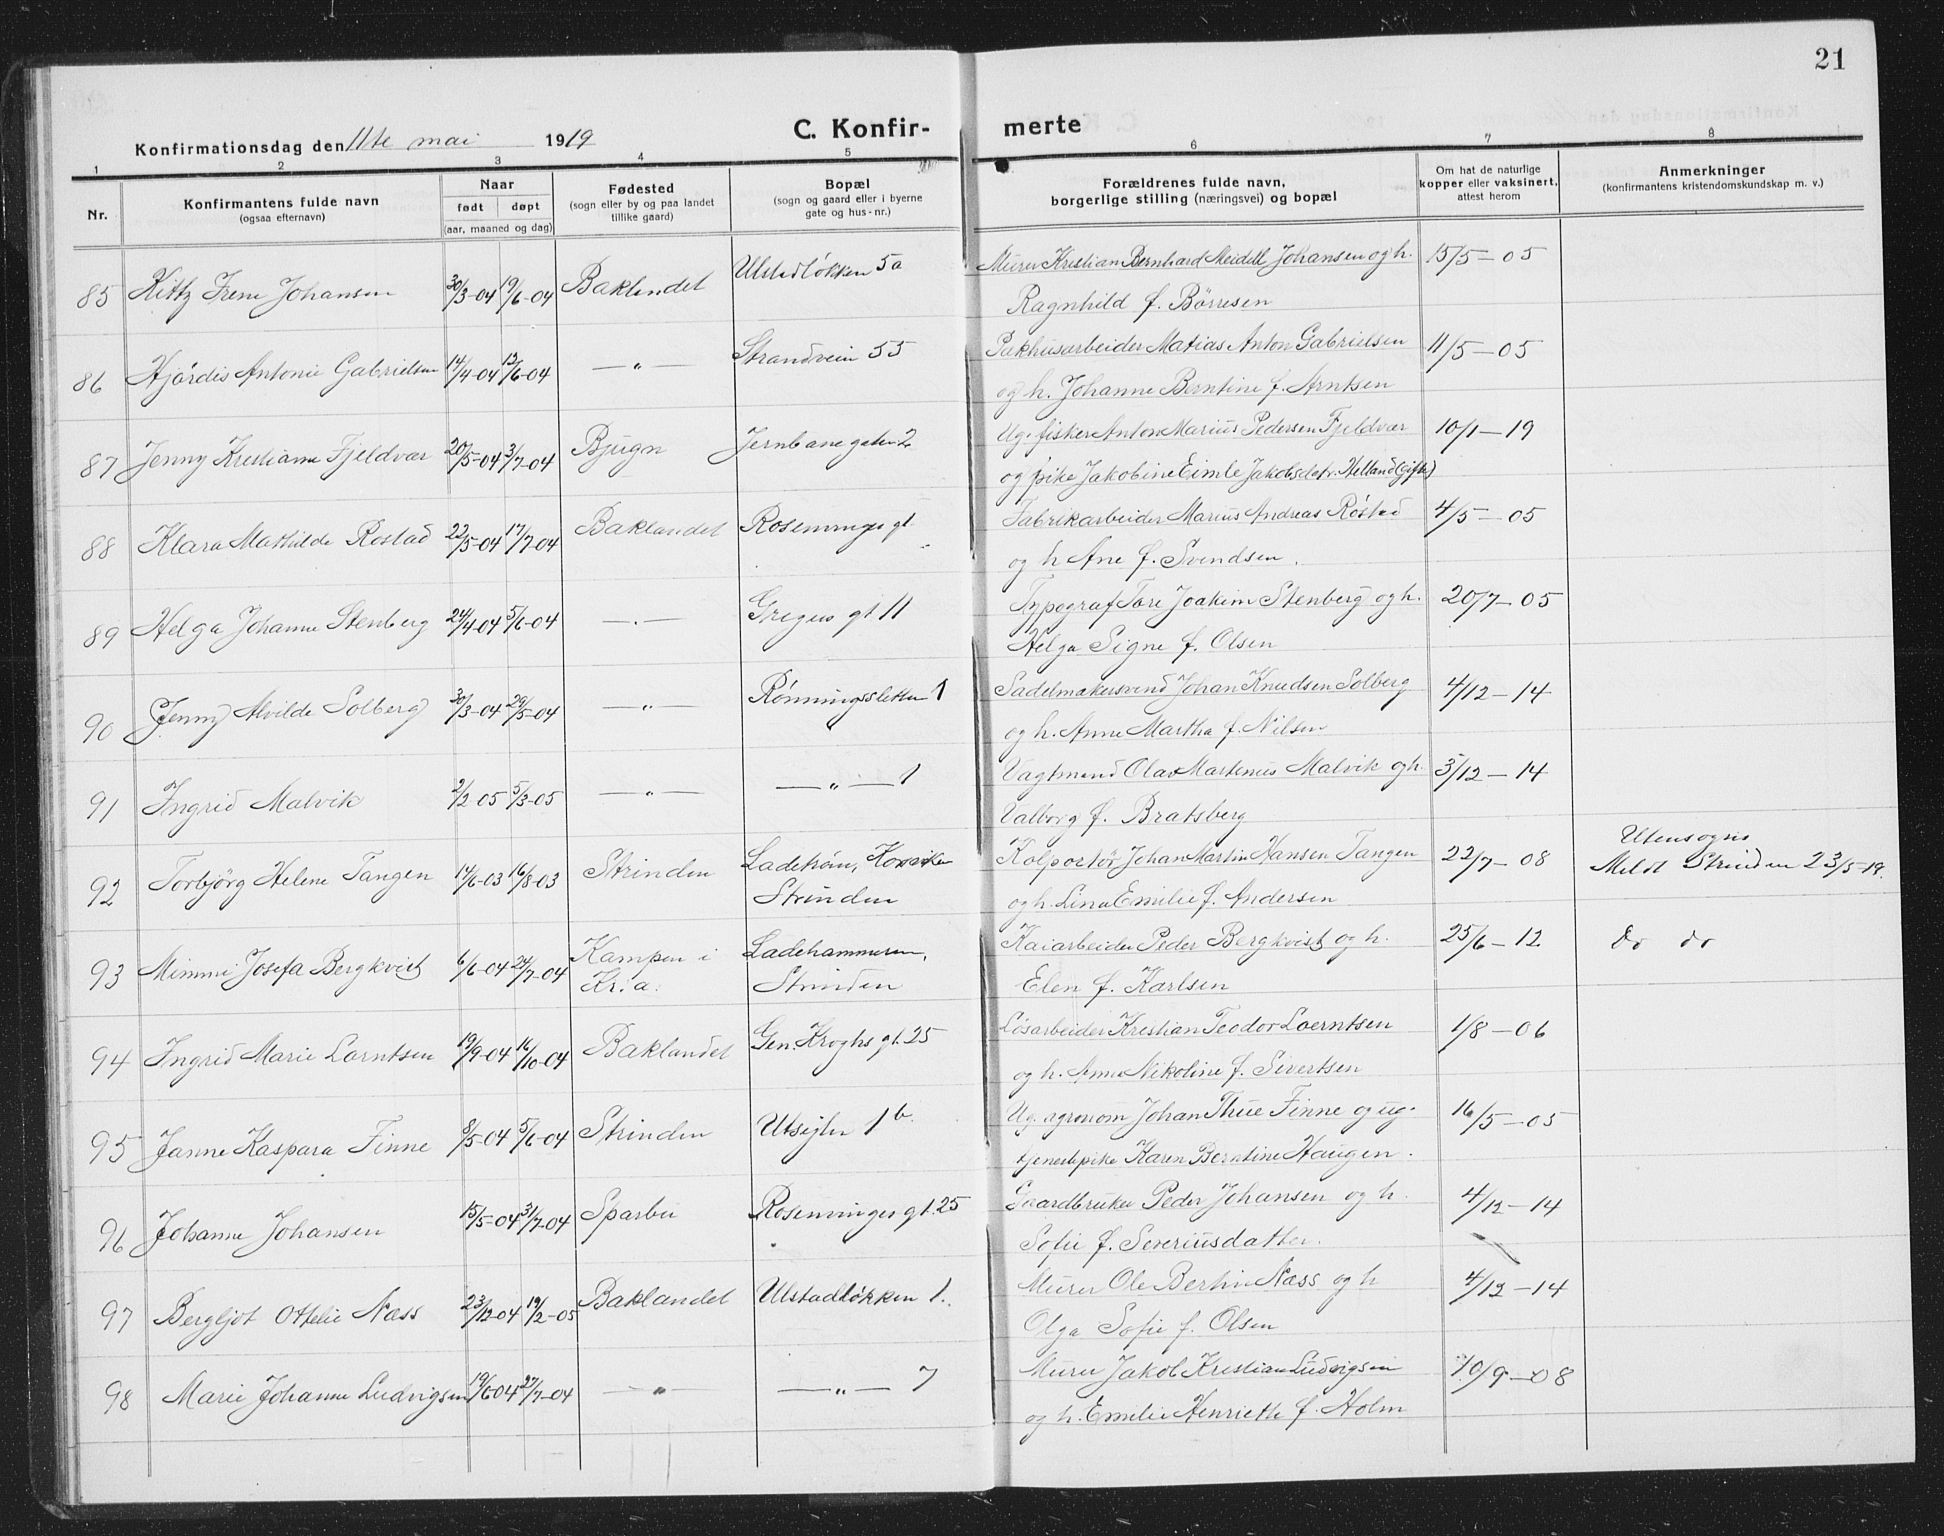 21
Konfirmationsdag den 11te mai 1919
C. Konfir- merte
1 2 3 4 5 6 7 8
Nr.
Konfirmantens fulde navn
(ogsaa efternavn)
Naar
født døpt
(aar, maaned og dag)
Fødested
(sogn eller by og paa landet
tillike gaard)
Bopæl
(sogn og gaard eller i byerne
gate og hus-nr.)
Forældrenes fulde navn,
borgerlige stilling (næringsvei) og bopæl
Om hat de naturlige
kopper eller vaksinert,
attest herom
Anmerkninger
(konfirmantens kristendomskundskap m. v.)
85 Kitty Irene Johansen 30/3-04 19/6-04 Baklandet Ulstadløkken 5a Murer Kristian Bernhard Meidell Johansen og h. 15/5-05
Ragnhild f. Børresen
86 Hjørdis Antonie Gabrielsen 14/4-04 12/6-04 —"— Strandvein 55 Pakhusarbeider Matias Anton Gabrielsen 11/5-05
og h. Johanne Berntine f. Arntsen
87 Jenny Kristianne Fjeldvær 20/5-04 3/7-04 Bjugn Jernbanegaten 2 Ug. fisker Anton Marius Pedersen Fjeldvær 10/1-19
og pike Jakobine Eimle Jakobsdatr. Helland (gift)
88 Klara Mathilde Rostad 22/5-04 17/7-04 Baklandet Rosenborgs gt. Fabrikarbeider Marius Andreas Røstad 4/5-05
og h Ane f. Svendsen.
89 Helga Johanne Stenberg 24/4-04 5/6-04 —"— Gregus gt 11 Typograf Tore Joakim Stenberg og h. 20/7-05
Helga Signe f. Olsen
90 Jenny Alvilde Solberg 30/3-04 29/5-04 —"— Rønningsletten 1 Sadelmakersvend Johan Knudsen Solberg 4/12-14
og h. Anne Martha f. Nilsen
91 Ingrid Malvik 2/2-05 5/3-05 —"— —"— 1 Vagtmand Olav Martenus Malvik og h. 3/12-14
Valborg f. Bratsberg
92 Torbjørg Helene Tangen 14/6-03 16/8-03 Strinden Ladehøin, Korsviken Kolportør Johan Martin Hansen Tangen 22/7-08 Utensogns
Strinden og h. Lina Emilie f. Andersen Meldt Strinden 23/5-19.
93 Mimmi Josefa Bergkvist 6/6-04 24/7-04 Kampen i Ladehammeren, Kaiarbeider Peder Bergkvist og h. 25/6-12 do do
Kr.a. Strinden Elen f. Karlsen
94 Ingrid Marie Lorntsen 19/9-04 16/10-04 Baklandet Gen. Kroghs gt. 25 Løsarbeider Kristian Teodor Loerntsen 1/8-06
og h. Anna Nikoline f. Sivertsen
95 Janne Kaspara Finne 8/5-04 5/6-04 Strinden Utsigten 1b. Ug. agronom Johan Thue Finne og ug. 16/5-05
tjenestepike Karen Berntine Haugen.
96 Johanne Johansen 15/5-04 31/7-04 Sparbu Rosenborgs gt. 25 Gaardbruker Peder Johansen og h. 4/12-14
Sofie f. Severinsdatter.
97 Bergljot Ottelie Næss 23/12-04 19/2-05 Baklandet Ulstadløkken 1. Murer Ole Bertin Næss og h 4/12-14
Olga Sofie f. Olsen
98 Marie Johanne Ludvigsen 19/6-04 27/7-04 —"— —"— 7 Murer Jakob Kristian Ludvigsen 10/9-08
og h. Emilie Henriette f. Holm